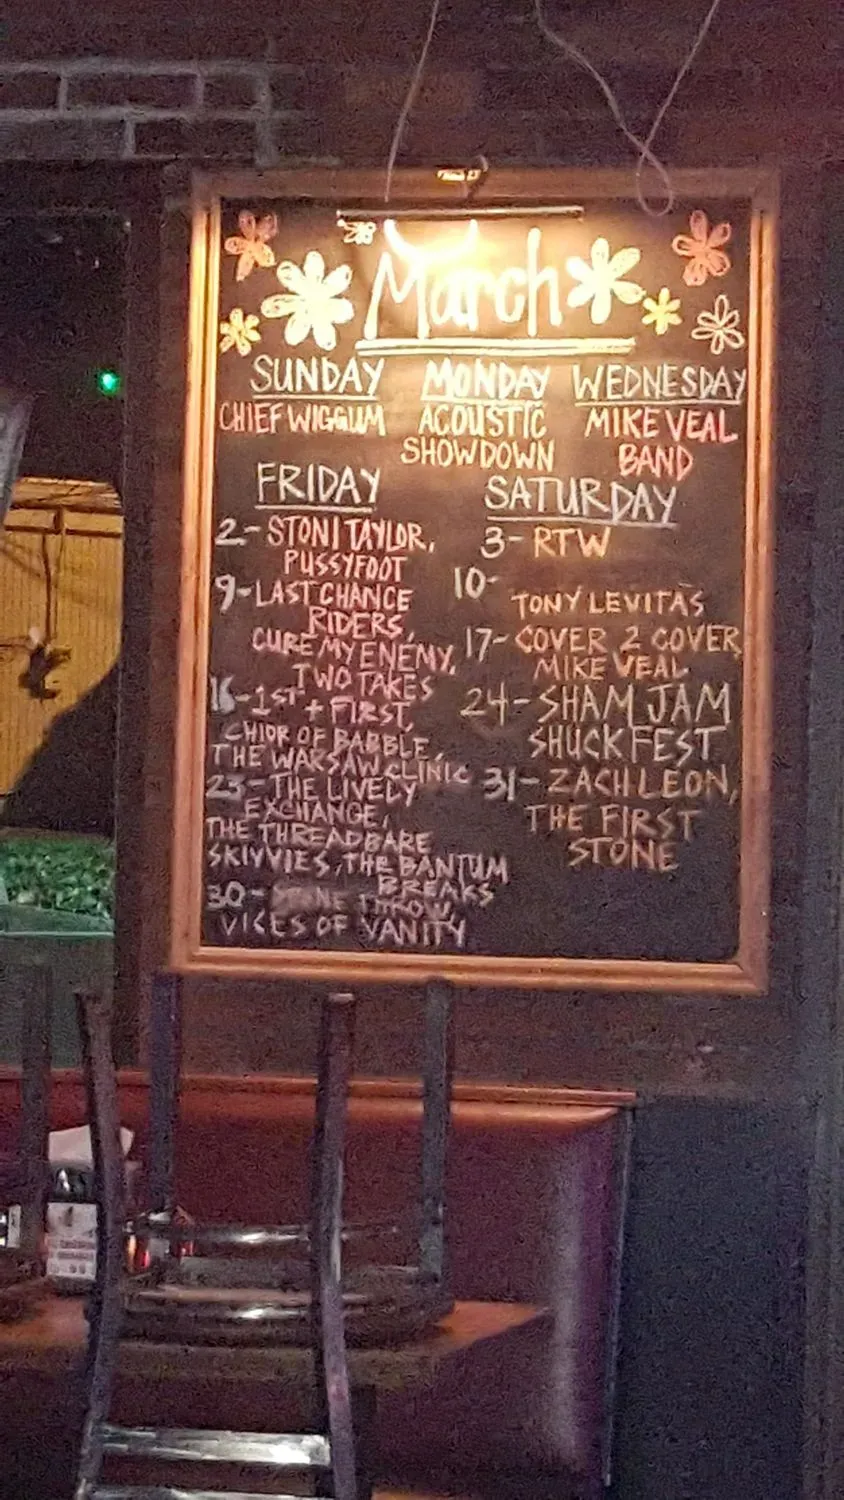 March
SUNDAY
CHIEF WIGGUM
MONDAY
ACOUSTIC
SHOWDOWN
WEDNESDAY
MIKE VEAL
BAND
FRIDAY
2-STONI TAYLOR,
PUSSYFOOT
9-LAST CHANCE
RIDERS,
CURE MY ENEMY,
TWO TAKES
16-1ST
+ FIRST,
CHIOR OF BABBLE,
THE WARSAW CLINIC
23-THE LIVELY
EXCHANGE,
THE THREADBARE
SKIVVIES, THE BANTUM
BREAKS
30-STONE THROW,
VICES OF VANITY
SATURDAY
3-RTW
10-
TONY LEVITAS
17-COVER 2 COVER,
MIKE VEAL
24-SHAM JAM
SHUCKFEST
31-ZACH LEON,
THE FIRST
STONE